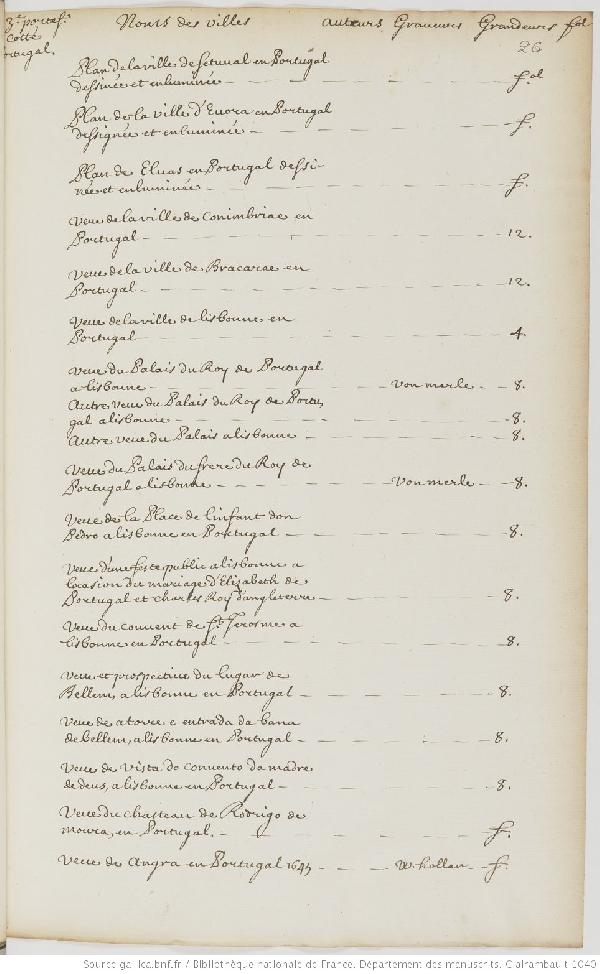 3.e portef.
Cotté
Portugal.
Noms des villes auteurs Graueurs Grandeurs fol
26
Plan de la ville de setuual en Portugal
dessinée et enluminée — fol
Plan de la ville D'Euora en Portugal
dessignée et enluminée — f.
Plan de Eluas en Portugal dessi-
née et enluminée — f.
Veue de la ville de Conimbriae en
Portugal — 12.
Veue de la ville de Bracarae en
Portugal — 12.
Veue de la ville de lisbonne en
Portugal — 4.
Veue du Palais du Roy de Portugal
a lisbonne — von merle — 8.
Autre veue du Palais du Roy de Portu,
gal a lisbonne — 8.
Autre veue du Palais a lisbonne — 8.
Veue du Palais du frere du Roy de
Portugal a lisbonne — von merle — 8.
Veue de la Place de l'infant don
Pedro a lisbonne en Portugal — 8.
Veue d'une feste public a lisbonne a
locasion du mariage d'Elizabeth de
Portugal et charles Roy d'angleterre — 8.
Veue du conuent de St. Jerosme a
lisbonne en Portugal — 8.
Veue et prospectiue du lugar de
Bellem, a lisbonne en Portugal — 8.
Veue de a torre e entrada da bama
de bellem, a lisbonne en Portugal — 8.
Veue de Vista do conuento da madre
de deus, a lisbonne en Portugal — 8.
Veue du chasteau de Rodrigo de
moura, en Portugal. — f.
Veue de Angra en Portugal 1645 — W. hollar — f.
Source gallica.bnf.fr / Bibliothèque nationale de France. Département des manuscrits. Clairambault 1040